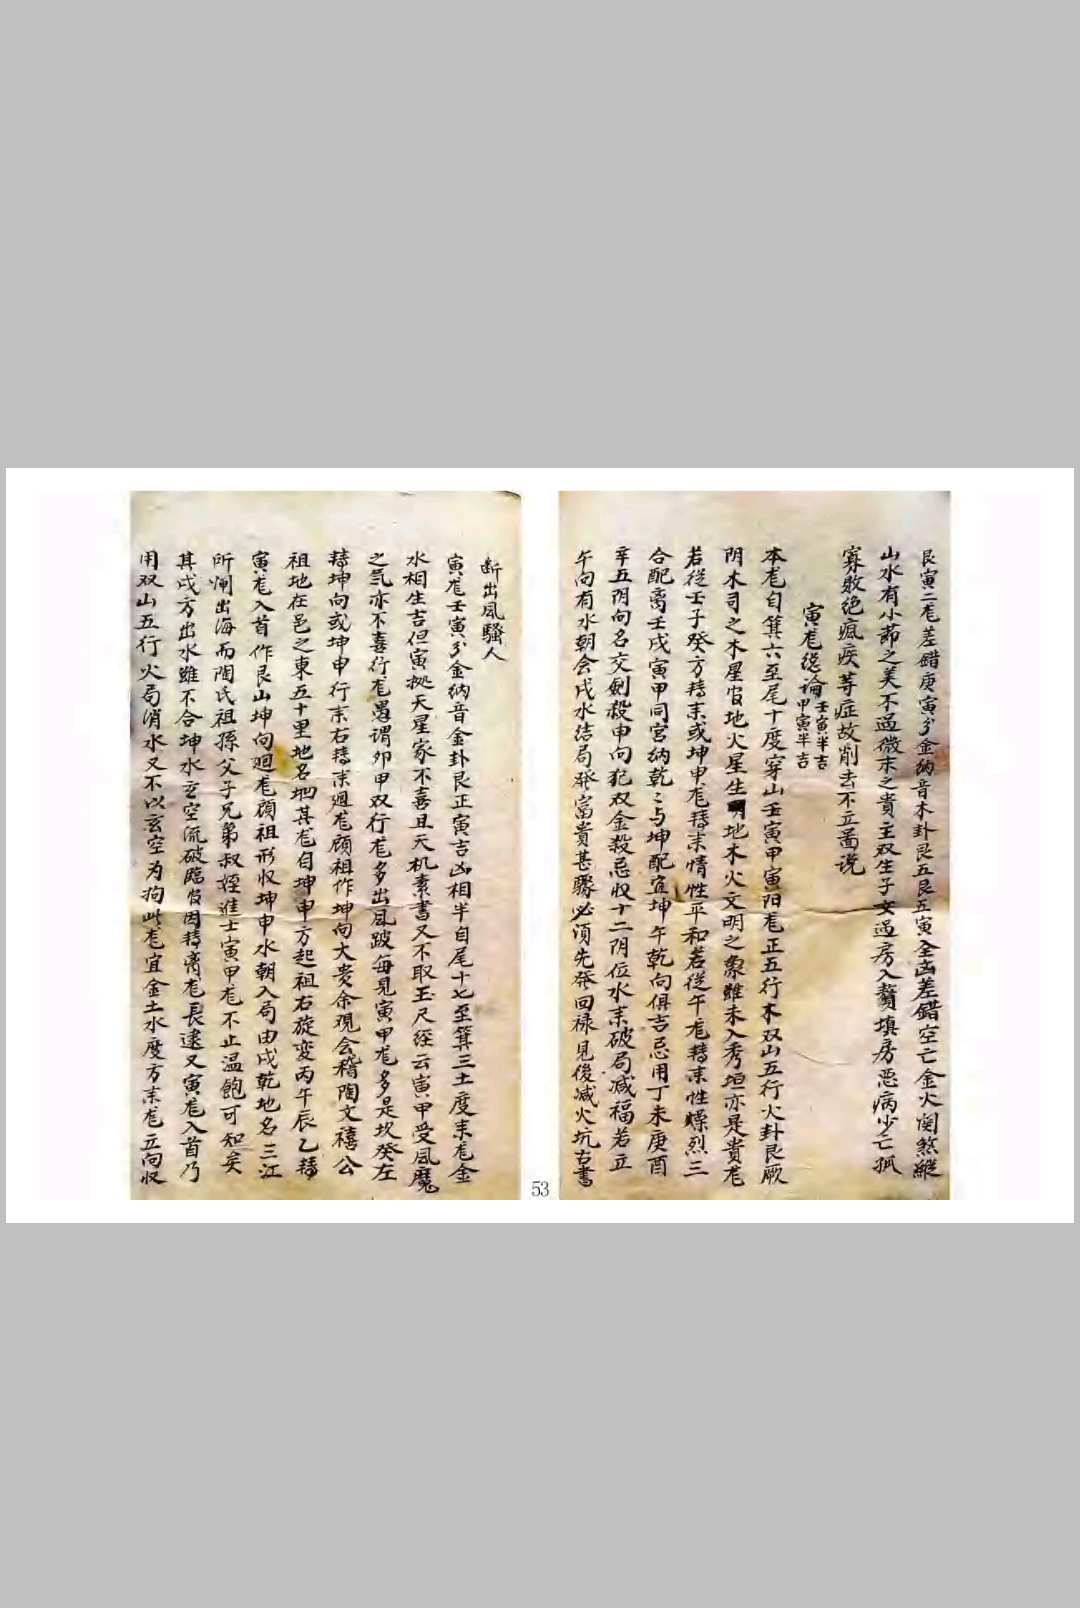 艮寅二龙差错庚寅分金纳音木卦艮五艮五寅全凶差错空亡金火関煞縱
山水有小節之美不過微末之貴主双生子女過房入贅填房惡病少亡孤
寡敗絶瘋疾等症故削去不立畫说
寅龙總論壬寅半吉甲寅半吉
本龙自箕六至尾十度穿山壬寅甲寅阳龙正五行木双山五行火卦艮厥
阴木司之木星官地火星生明地木火文明之象雖未入秀垣亦是貴龙
若從壬子癸方转来或坤申龙转来情性平和若從午龙转来性燥烈三
合配离壬戌寅甲同宮納乾乾与坤配宜坤午乾向俱吉忌用丁未庚酉
辛五阴向名交劍殺申向犯双金殺忌收十二阴位水来破局减福若立
午向有水朝会戌水结局發富貴甚驟必须先發回禄見後减火坑古書
断出風騷人
寅龙壬寅分金纳音金卦艮正寅吉凶相半自尾十七至箕三土度来龙金
水相生吉但寅拠天星家不喜且天机素書又不取玉尺经云寅甲受風魔
之気亦不喜行龙愚谓卯甲双行龙多出風跛每見寅甲龙多是坎癸左
转坤向或坤申行来右转来廻龙顧祖作坤向大贵余現会稽陶文禧公
祖地在邑之東五十里地名其龙自坤申方起祖右旋变丙午辰乙转
寅龙入首作艮山坤向廻龙顧祖形収坤申水朝入局由戌乾地名三江
所闸出海而陶氏祖孫父子兄弟叔姪進士寅甲龙不止温飽可知矣
其戌方出水雖不合坤水玄空流破臨官因转离龙長遠又寅龙入首乃
用双山五行火局消水又不以玄空为拘此龙宜金土水度方来龙立向収
53